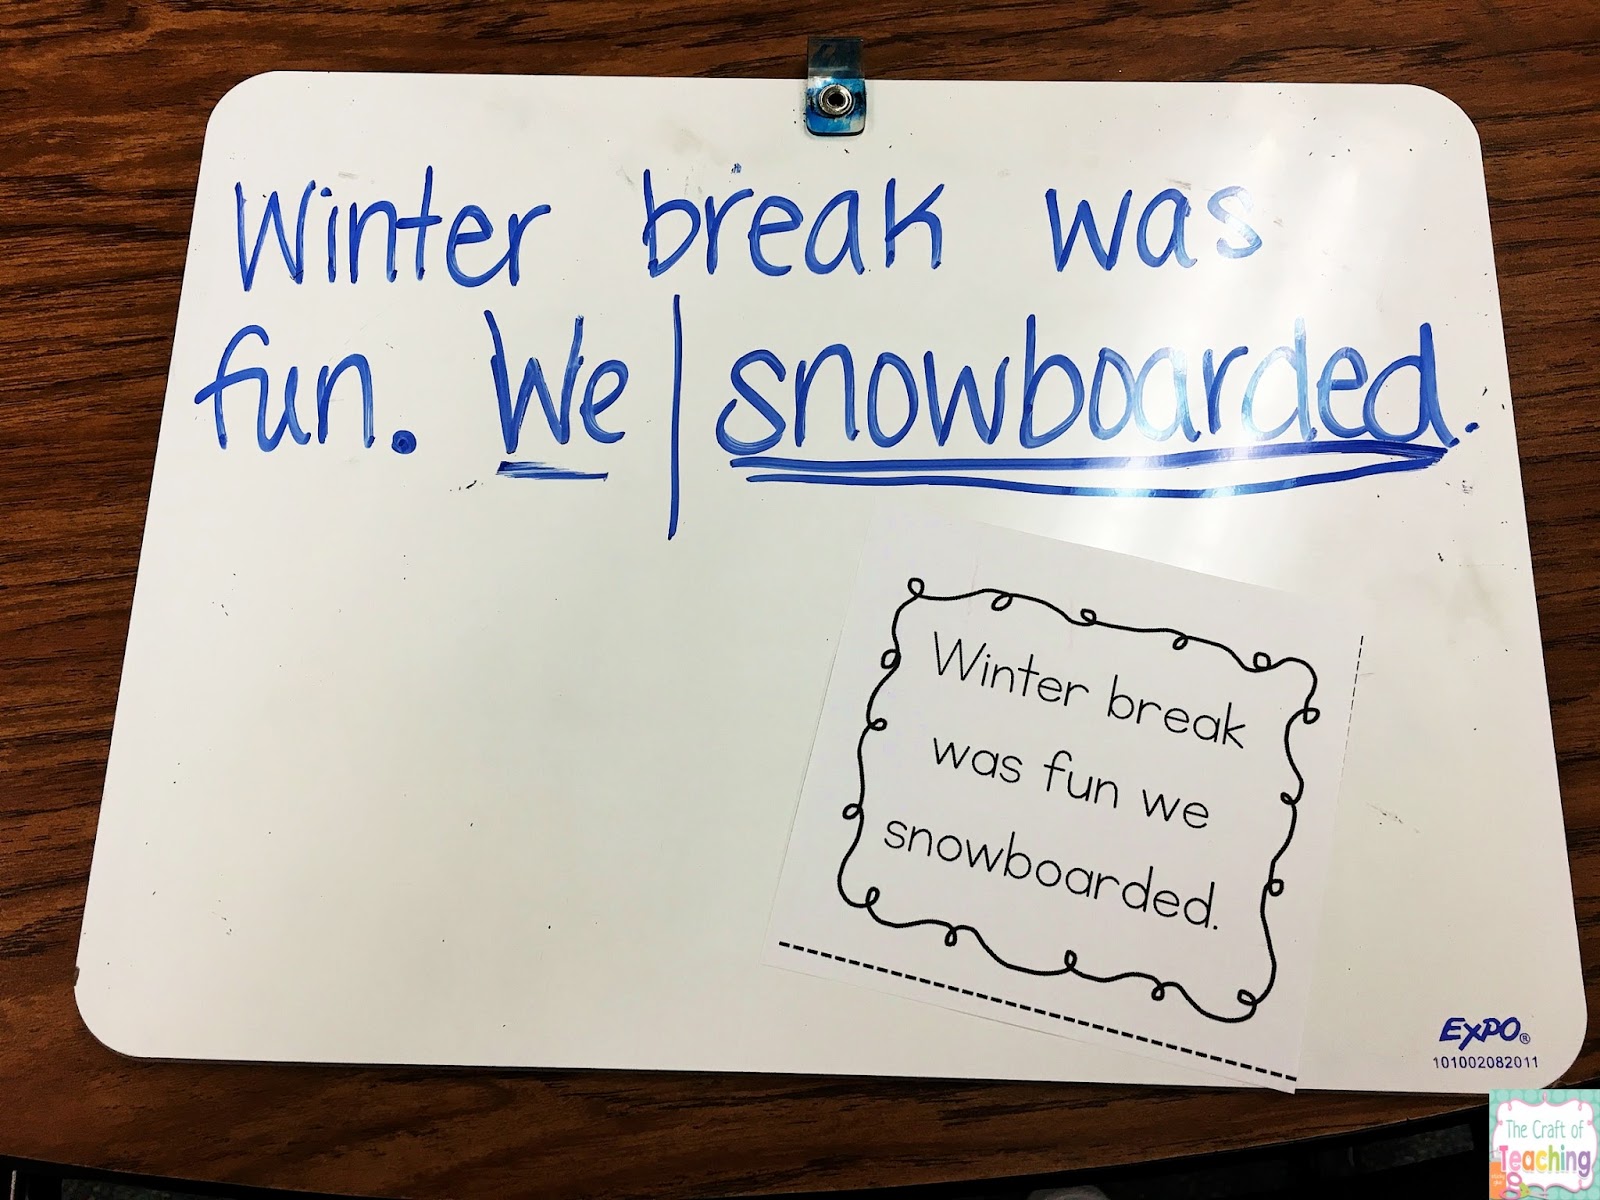 Winter break was
fun. We | snowboarded.
Winter break
was fun we
snowboarded.
EXPO®
101002082011
The Craft of
Teaching